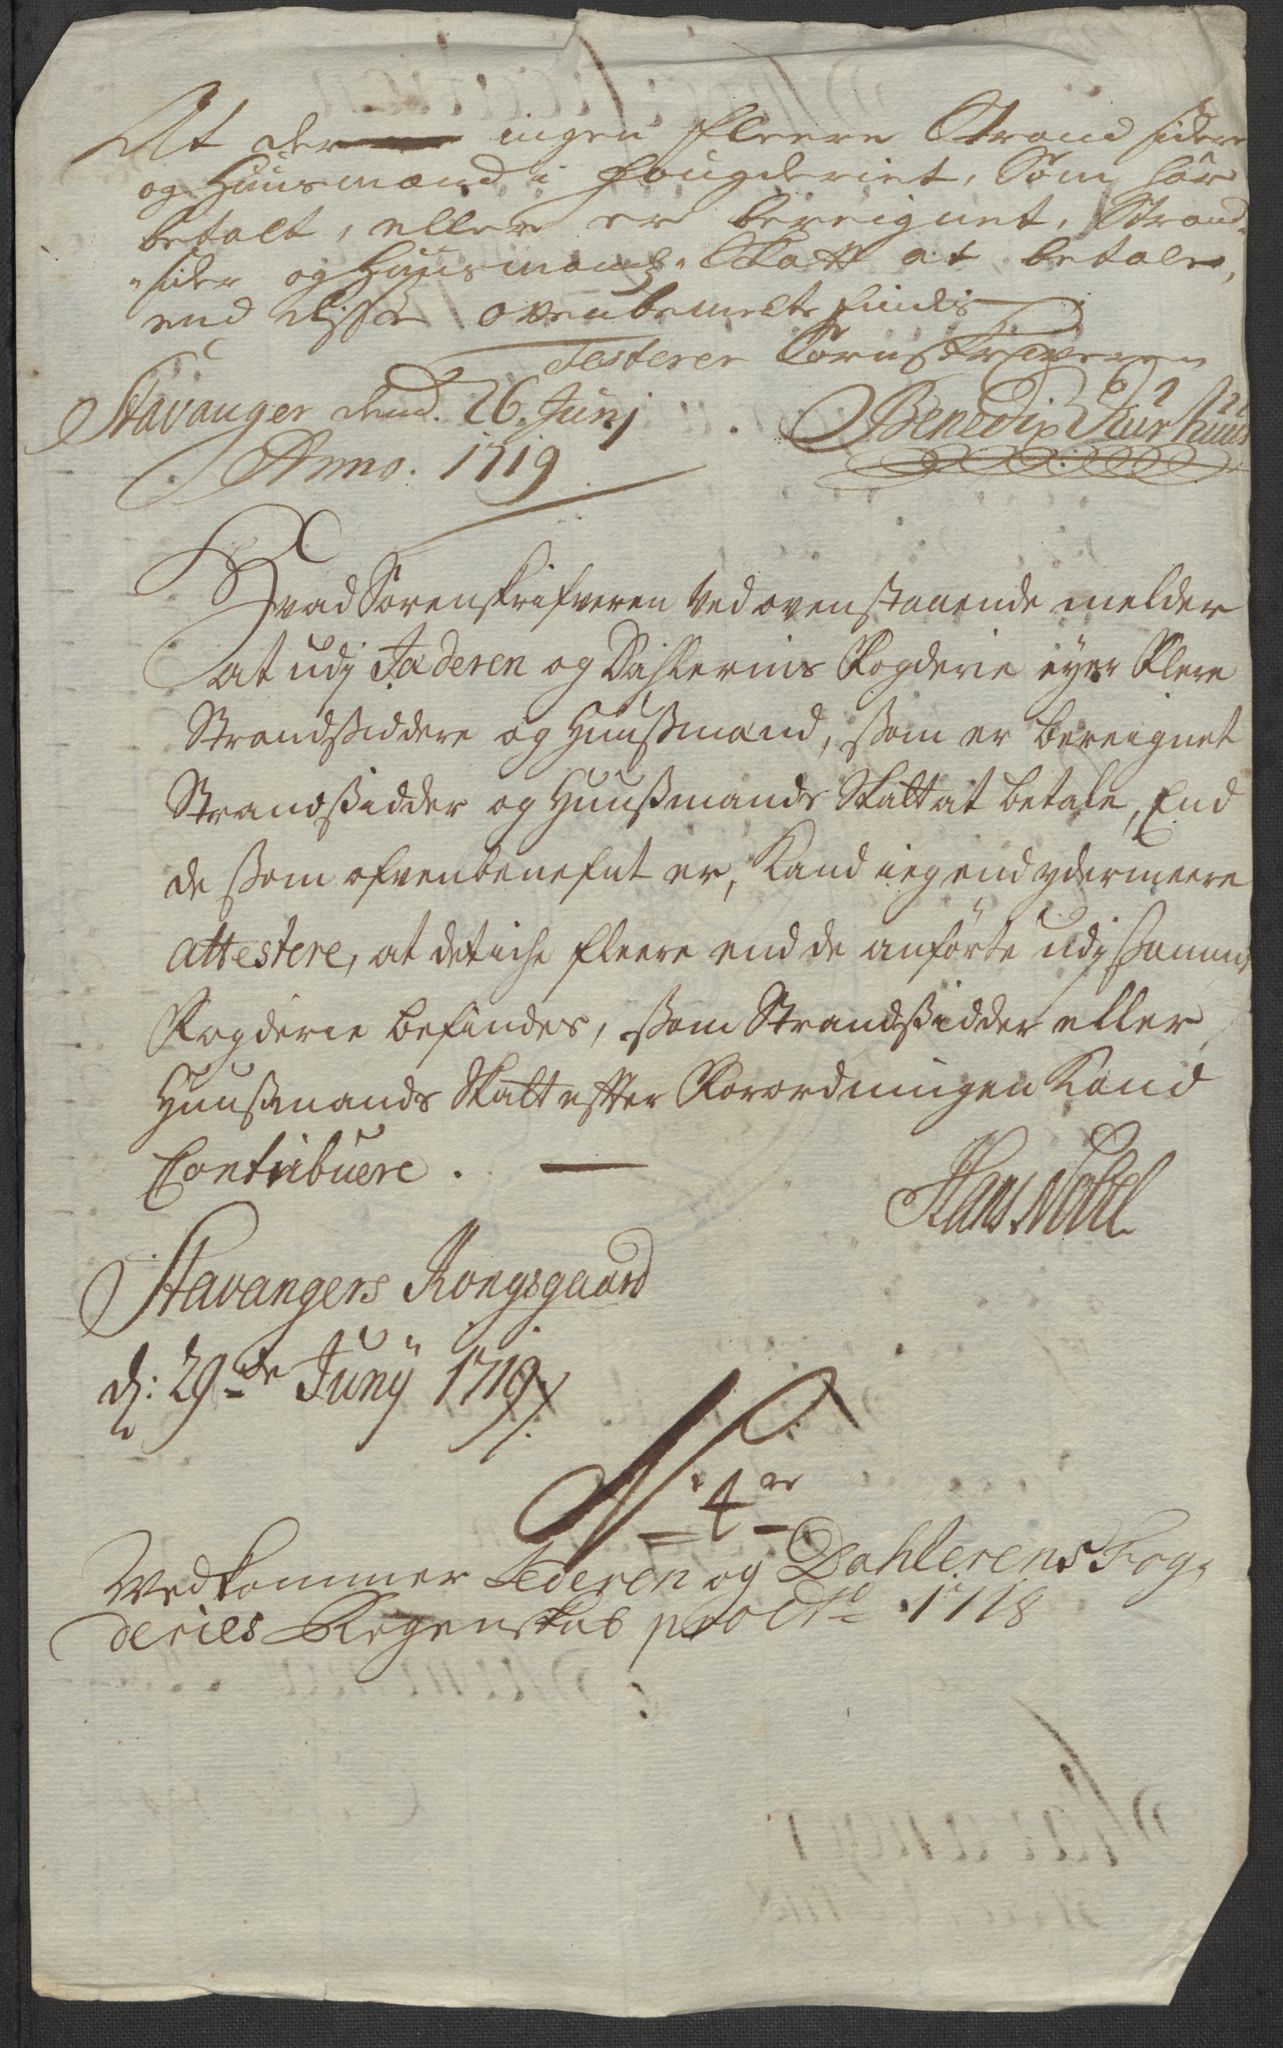 At der ingen fleere Strand sidere
og Huusmænd i fougderiet, Som har
betalt, eller er bereignet, Strand-
sider og Huusmands Skatt at betale,
end disse ovenbemelte findes
Testerer Sorenskriveren
Stavanger dend. 26. Junj Benedix Kurhuus
Anno. 1719
Hvad Sorenskrifveren ved ovenstaaende melder
at udj Jæderen og Dahlernis Fogderie eyer Flere
Strandsiddere og Huusmænd, som er bereignet
Strandsidder og Huusmands Skatt at betale, End
de som ofvenbenefnt er, Kand ieg end ydermeere
attestere, at det iche fleere end de anførte udj samme
Fogderie befindes, som Strandsidder eller
Huusmands Skatt effter Forordningen Kand
Contribuere.
Hans Nobel
Stavangers Kongsgaard
d: 29de Junij 1719
No 4
Vedkommer Jederen og Dahlerens Fog-
deries Regenskab pro Ao 1718